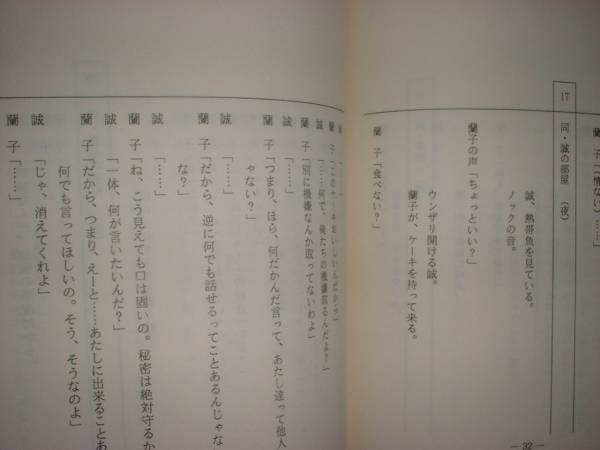 蘭子「（情ない）……」
17 同・誠の部屋（夜）
誠、熱帯魚を見ている。
ノックの音。
蘭子の声「ちょっといい？」
ウンザリ開ける誠。
蘭子が、ケーキを持って来る。
蘭子「食べない？」
― 32 ―
誠「……」
蘭子「このケーキおいしいんだから」
誠「……何、俺たちの機嫌取るんだよ？」
蘭子「別に機嫌なんか取ってないわよ」
誠「……」
蘭子「つまり、ほら、何だかんだ言って、あたし達って他人
ゃない？」
誠「……」
蘭子「だから、逆に何でも話せるってことあるんじゃな
な？」
誠「……」
蘭子「ね、こう見えても口は固いの。秘密は絶対守るか
誠「一体、何が言いたいんだ？」
蘭子「だから、つまり、えーと……あたしに出来ることあ
何でも言ってほしいの。そう、そうなのよ」
誠「じゃ、消えてくれよ」
蘭子「……」